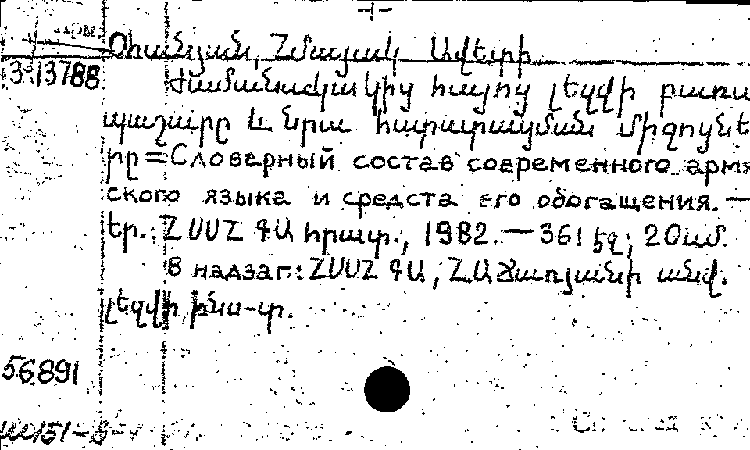 Օհանյան, Հմայակ Ավետիի
3-13788 Ժամանակակից հայոց լեզվի բառա
պաշարը և նրա հարստացման միջոցնե
րը = Словарный состав современного армя
ского языка и средста его обогащения. —
Եր.: ՀՍՍՀ ԳԱ հրատ., 1982. — 361 էջ; 20սմ.
В надзаг.: ՀՍՍՀ ԳԱ, Հ.Աճառյանի անվ.
լեզվի ինս-տ.
56891